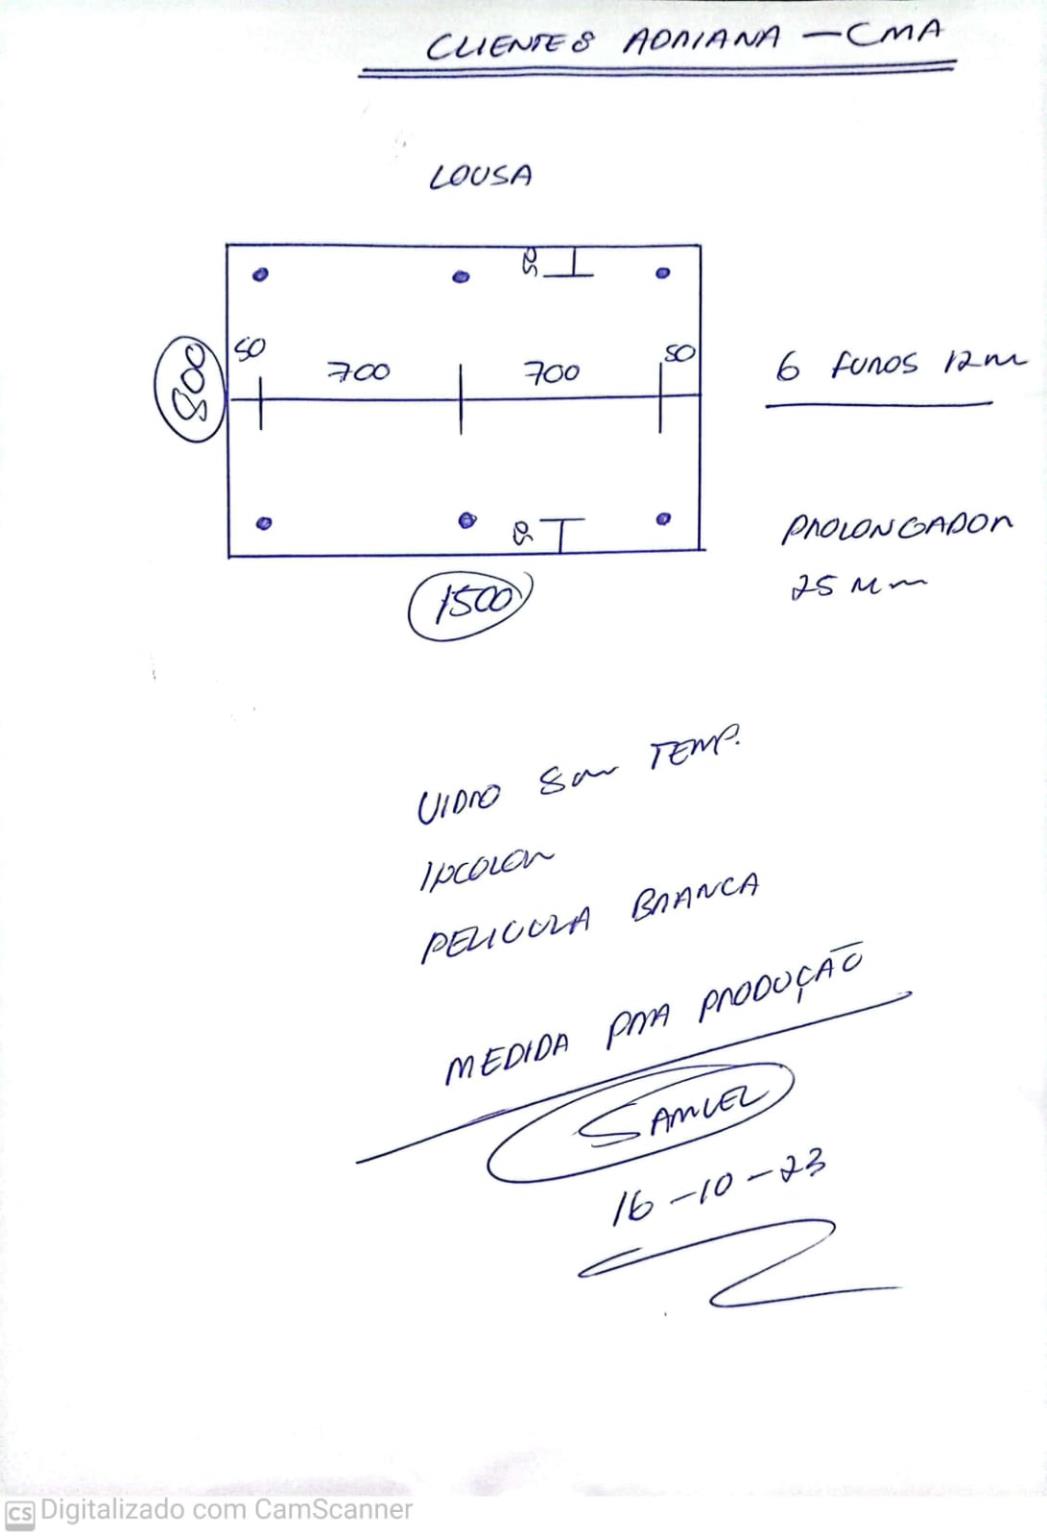 CLIENTES ADRIANA — CMA
LOUSA
50
50 700 700 50
800
6 FUROS 12m
50
1500
PROLONGADOR
25 Mm
VIDRO 8mm TEMP.
INCOLOR
PELICULA BRANCA
MEDIDA PRA PRODUÇÃO
SAMUEL
16-10-23
CS Digitalizado com CamScanner